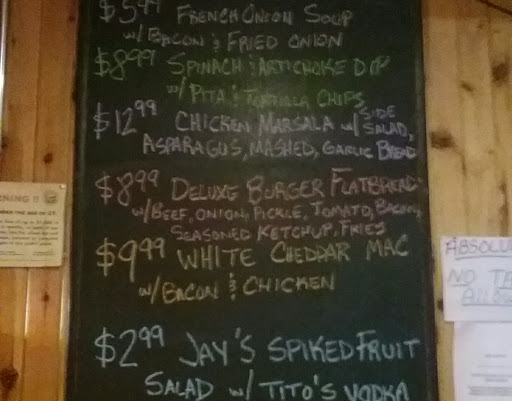 $5.99 FRENCH ONION SOUP
W/ BACON & FRIED ONION
$8.99 SPINACH & ARTICHOKE DIP
W/ PITA & TORTILLA CHIPS
$12.99 CHICKEN MARSALA W/ SIDE SALAD,
ASPARAGUS, MASHED, GARLIC BREAD
$8.99 DELUXE BURGER FLATBREAD
W/ BEEF, ONION, PICKLE, TOMATO, BACON,
SEASONED KETCHUP, FRIES
$9.99 WHITE CHEDDAR MAC
W/ BACON & CHICKEN
$2.99 JAY'S SPIKED FRUIT
SALAD W/ TITO'S VODKA
NING !!
ABSOLU
NO